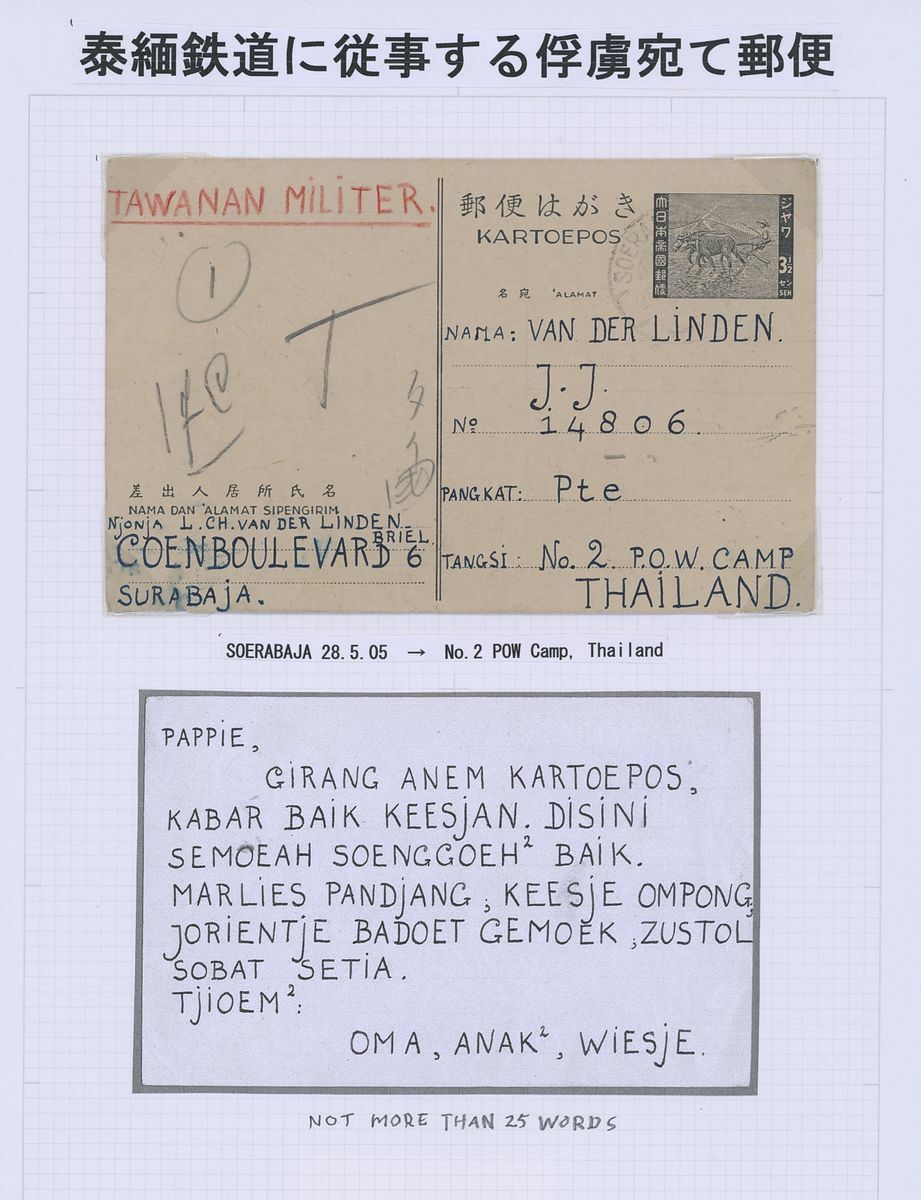 泰緬鉄道に従事する俘虜宛て郵便
TAWANAN MILITER.
1
T
差出人居所氏名
NAMA DAN ALAMAT SIPENGIRIM
NJONJA L.CH. VAN DER LINDEN_
BRIEL.
COENBOULEVARD 6
SURABAJA.
郵便はがき
KARTOEPOS
大日本帝國郵便
ジヤワ
3½
セン
SEN
SOERA
名宛 ALAMAT
NAMA: VAN DER LINDEN.
J.J.
No 14806.
PANGKAT: Pte
TANGSI: No. 2. P.O.W. CAMP
THAILAND.
SOERABAJA 28.5.05 → No.2 POW Camp, Thailand
PAPPIE,
GIRANG ANEM KARTOEPOS,
KABAR BAIK KEESJAN. DISINI
SEMOEAH SOENGGOEH² BAIK.
MARLIES PANDJANG, KEESJE OMPONG,
JORIENTJE BADOET GEMOEK, ZUSTOL
SOBAT SETIA.
TJIOEM²:
OMA, ANAK², WIESJE.
NOT MORE THAN 25 WORDS